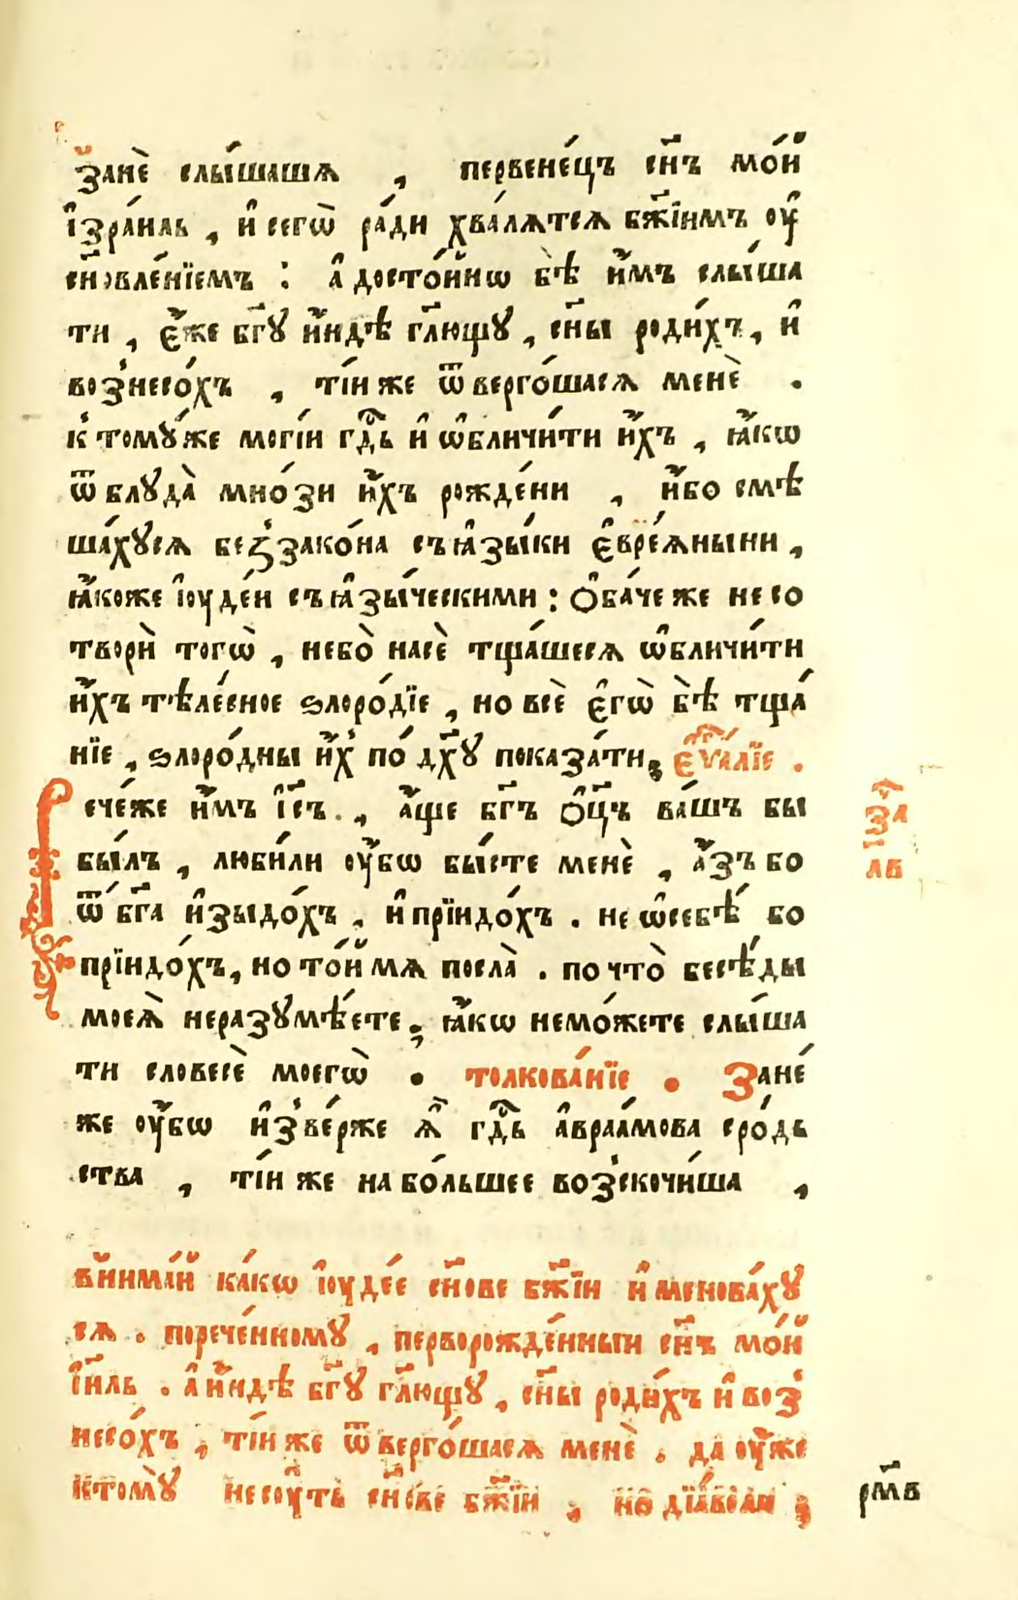 Занѐ слы́шашꙗ , пе́рвенецъ сн҃ъ мо́й
і҆зра́иль , и҆ сегѡ̀ ра́ди хва́лѧтсѧ бж҃їимъ оу҆
сн҃овле́нїемъ : а҆ досто́йнѡ бѣ̀ и҆̀мъ слы́ша
ти , є҆́же бг҃ꙋ и҆́ндѣ гл҃ющꙋ , сн҃ы роди́хъ , и҆
воз̾несо́хъ , ті́и же ѿверго́шасѧ менѐ .
к̾томꙋ́же могі́й гдⷭ҇ь и҆ ѡ҆бличи́ти и҆́хъ , ꙗ҆́кѡ
ѿ блꙋда̀ мно́зи и҆́хъ рожде́ни , и҆́бо смѣ
ша́хꙋсѧ без̾зако́на съ ꙗ҆зы́ки є҆вре́ѧныни ,
ꙗ҆́коже і҆ꙋде́и съ ꙗ҆зы́ческими : Ѻ҆ба́че же не со
творѝ тогѡ̀ , небо̀ насѐ тща́шесѧ ѡ҆бличи́ти
и҆́хъ тѣле́сное ѕлоро́дїе , но всѐ є҆гѡ̀ бѣ̀ тща́
нїе , ѕлоро́дны и҆́х̾ по дх҃ꙋ показа́ти ; є҆ѵⷢ҇а́лїе .
Рече́же и҆́мъ і҆с҃ъ . , а҆́ще бг҃ъ ѻ҆ц҃ъ ва́шъ бы
бы́лъ , люби́ли оу҆́бѡ бы́сте менѐ , а҆́зъ бо
ѿ бг҃а и҆зыдо́хъ , и҆ прїидо́хъ . не ѡ҆себѣ́ бо
прїидо́хъ , но то́й мѧ посла̀ . по что̀ бесѣ́ды
моеѧ̀ неразꙋмѣ́ете ; ꙗ҆́кѡ немо́жете слы́ша
ти словесѐ моегѡ̀ . толкова́нїе . Зане́
же оу҆́бѡ и҆з̾ве́рже ѧ҆̀ гдⷭ҇ь а҆враа́мова сро́дь
ства , ті́и же на бо́льшее воз̾скочи́ша ,
в̾нима́й ка́кѡ і҆ꙋде́е сн҃ове бж҃їи и҆менова́хꙋ
сѧ . порече́нномꙋ , перворожде́нныи сн҃ъ мо́й
і҆и҃ль . а҆ и҆́ндѣ бг҃ꙋ гл҃ющꙋ , сн҃ы роди́хъ и҆ воз̾
несо́хъ , ті́и же ѿверго́шасѧ менѐ . да оу҆́же
ктомꙋ̀ несꙋ́ть сн҃ове бж҃їи , но дїа́воли ;
за҇
лв
рм҃в